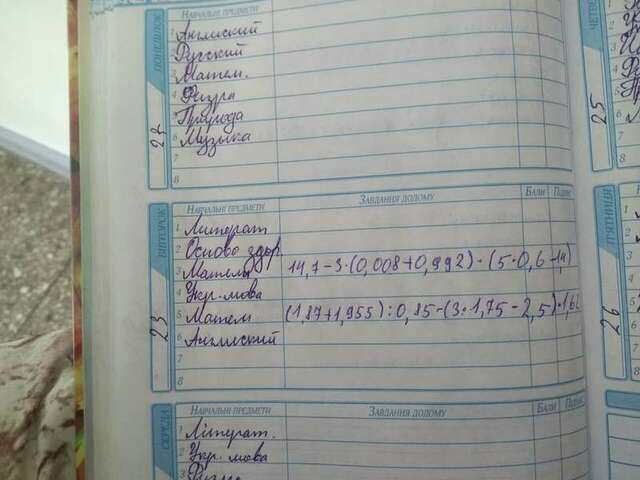 ПОНЕДІЛОК
НАВЧАЛЬНІ ПРЕДМЕТИ
1 Английский
2 Русский
3 Матем.
4 Физра
5 Природа
6 Музыка
7
8
22
ВІВТОРОК
НАВЧАЛЬНІ ПРЕДМЕТИ ЗАВДАННЯ ДОДОМУ Бали Підпис
1 Литерат.
2 Основы здор.
3 Матем 14,7-3·(0,008+0,992)·(5·0,6-1,4)
4 Укр. мова
5 Матем (1,87+1,955):0,85-(3·1,75-2,5)·1,62
6 Английский
7
8
23
СЕРЕДА
НАВЧАЛЬНІ ПРЕДМЕТИ ЗАВДАННЯ ДОДОМУ Бали
1 Літерат.
2 Укр. мова
3
ЧЕТВ
25
П'ЯТНИЦЯ
26